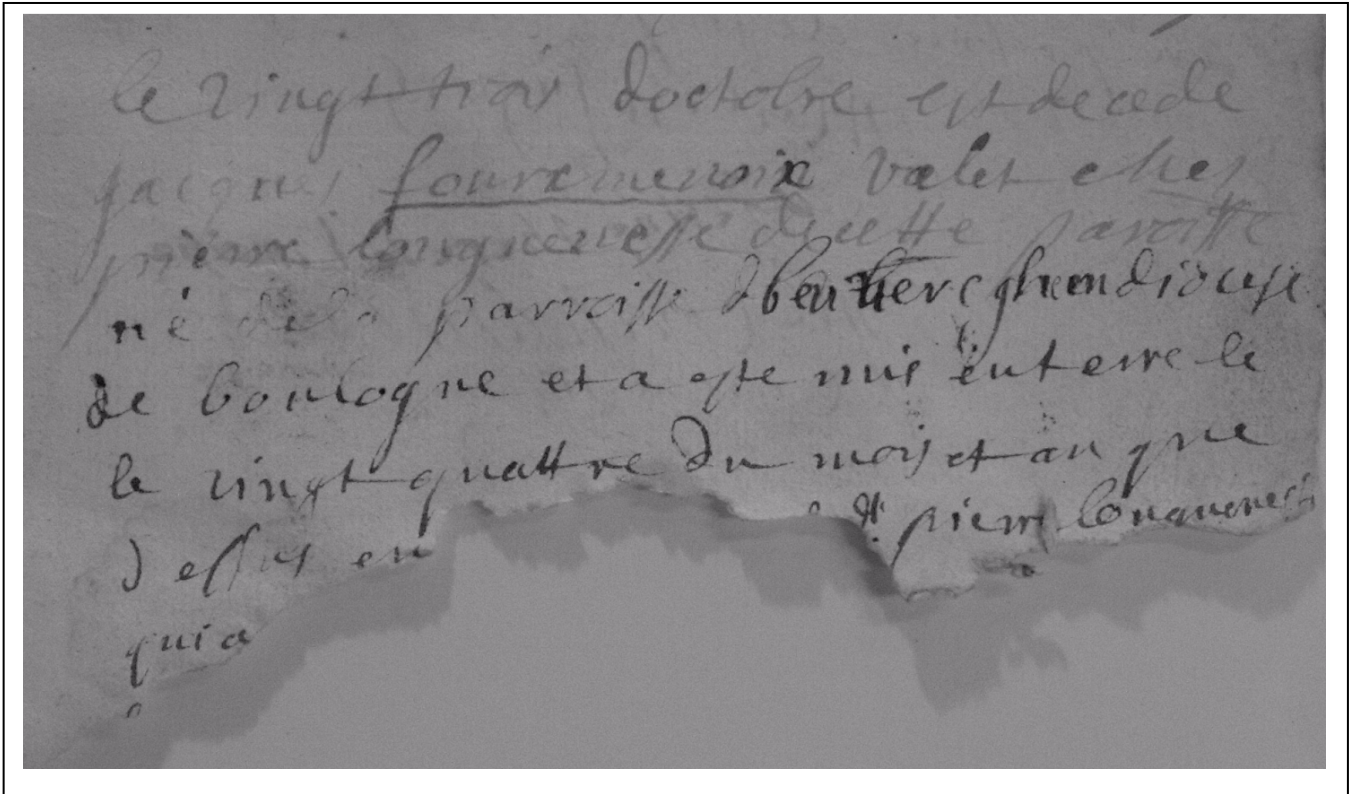 le vingt trois doctobre est decede
jacques fourcmenoix valet ches
pierre longuenesse de cette paroisse
né de la parroisse d diocese
de boulogne et a este mis enterre le
le vingt quattre du mois et an que
dessus en dt pierre longuenesse
qui a